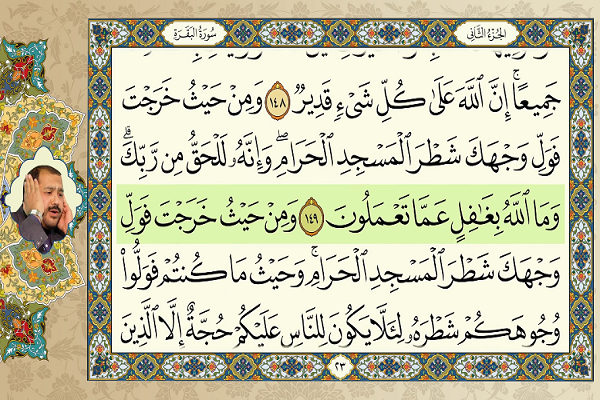 الجزء الثاني
سورة البقرة
جَمِيعًا ۚ إِنَّ ٱللَّهَ عَلَىٰ كُلِّ شَىْءٍ قَدِيرٌ ١٤٨ وَمِنْ حَيْثُ خَرَجْتَ
فَوَلِّ وَجْهَكَ شَطْرَ ٱلْمَسْجِدِ ٱلْحَرَامِ ۖ وَإِنَّهُۥ لَلْحَقُّ مِن رَّبِّكَ ۗ
وَمَا ٱللَّهُ بِغَٰفِلٍ عَمَّا تَعْمَلُونَ ١٤٩ وَمِنْ حَيْثُ خَرَجْتَ فَوَلِّ
وَجْهَكَ شَطْرَ ٱلْمَسْجِدِ ٱلْحَرَامِ ۚ وَحَيْثُ مَا كُنتُمْ فَوَلُّوا۟
وُجُوهَكُمْ شَطْرَهُۥ لِئَلَّا يَكُونَ لِلنَّاسِ عَلَيْكُمْ حُجَّةٌ إِلَّا ٱلَّذِينَ
٢٣